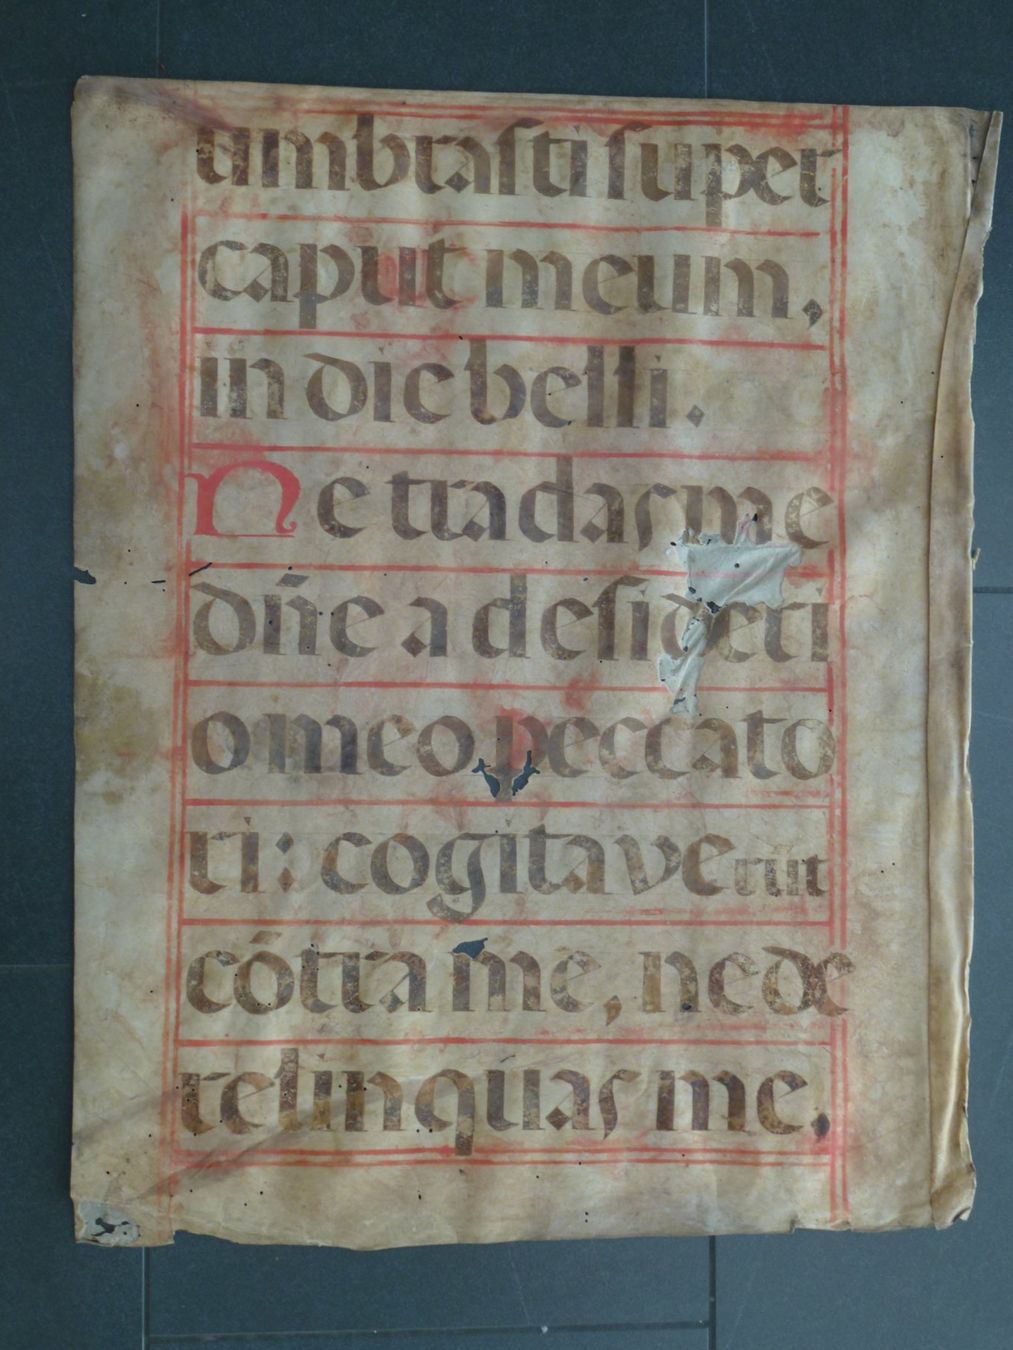 umbrasti super
caput meum,
in die belli.
Ne tradas me
dñe a desideri
o meo peccato
ri: cogitaverūt
cōtra me, ne de
relinquas me.